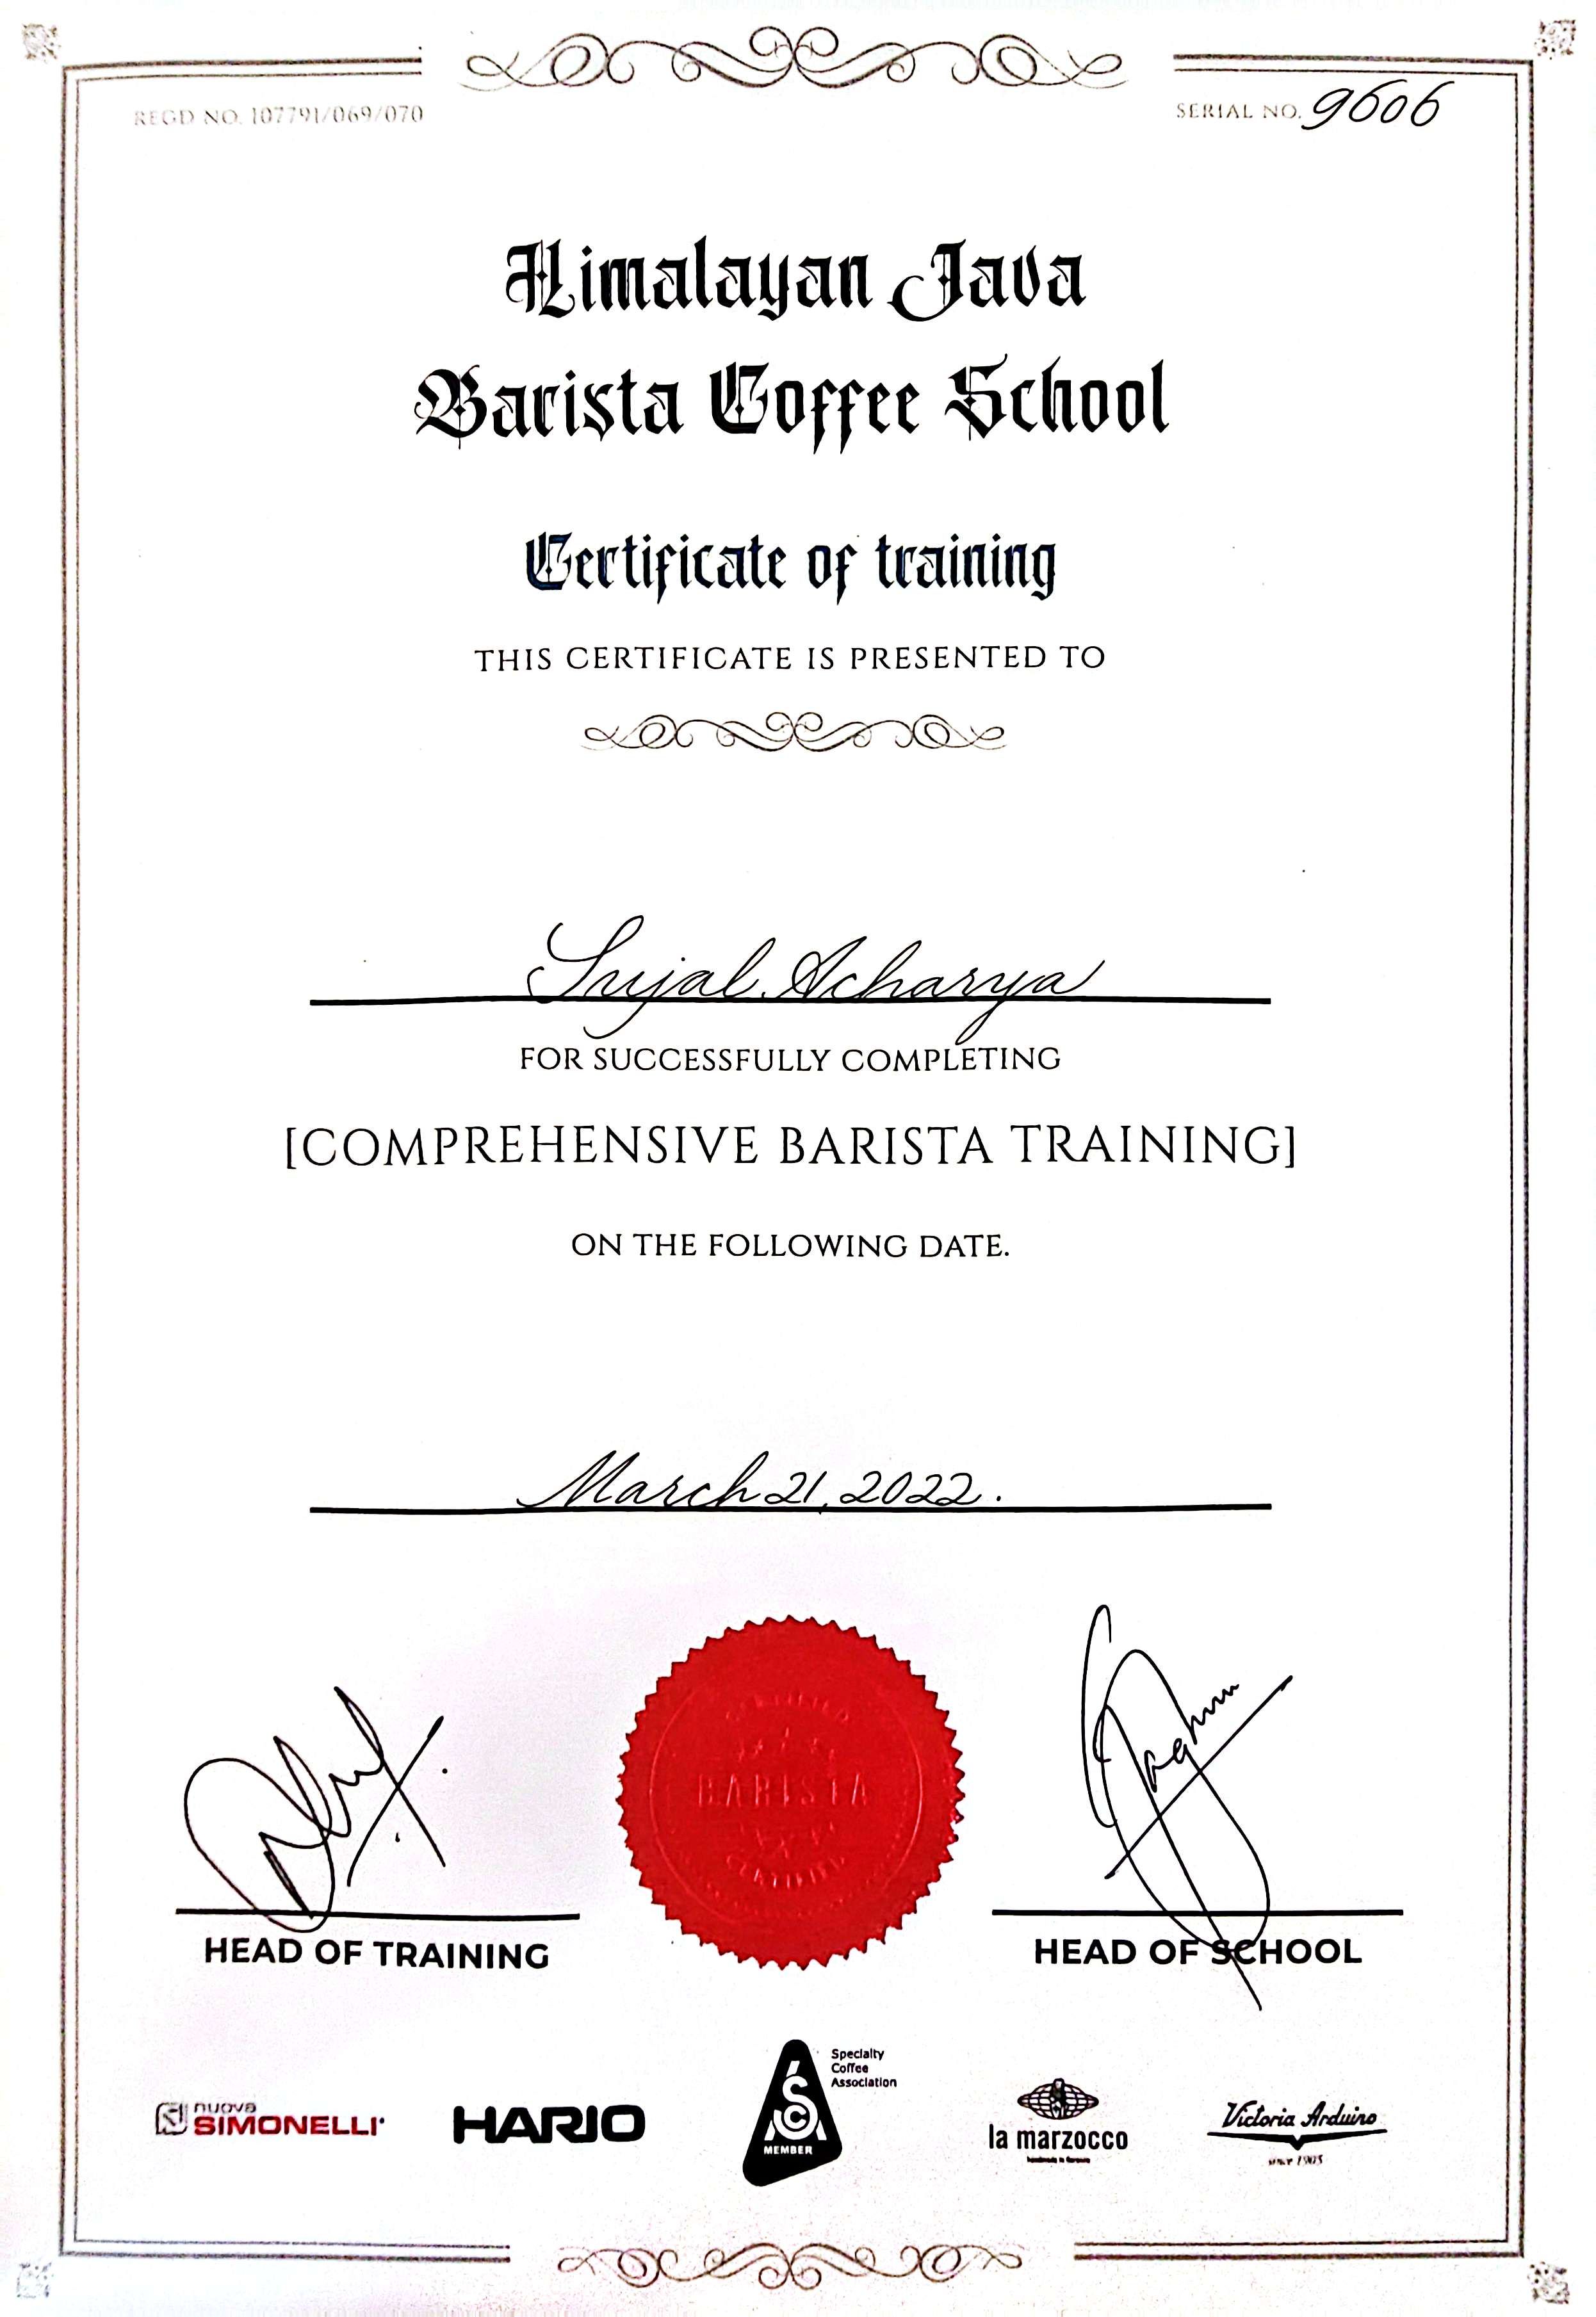 REGD NO. 107791/069/070
SERIAL NO. 9606
Himalayan Java
Barista Coffee School
Certificate of training
THIS CERTIFICATE IS PRESENTED TO
Sujal Acharya
FOR SUCCESSFULLY COMPLETING
[COMPREHENSIVE BARISTA TRAINING]
ON THE FOLLOWING DATE.
March 21, 2022.
CERTIFIED
BARISTA
CERTIFIED
HEAD OF TRAINING
HEAD OF SCHOOL
nuova
SIMONELLI
HARIO
Specialty
Coffee
Association
SCA
MEMBER
la marzocco
handmade in florence
Victoria Arduino
since 1905